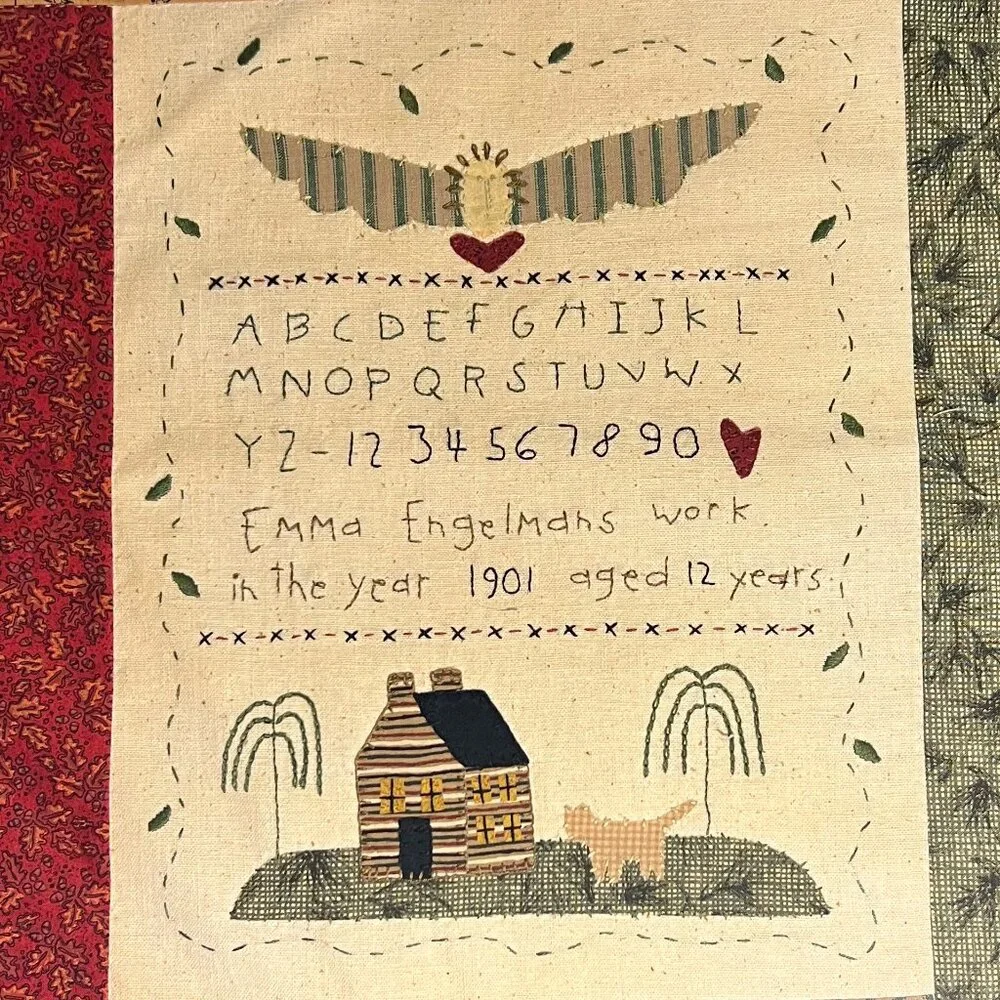 A B C D E F G H I J K L
M N O P Q R S T U V W X
Y Z - 1 2 3 4 5 6 7 8 9 0
Emma Engelmans work.
in the year 1901 aged 12 years